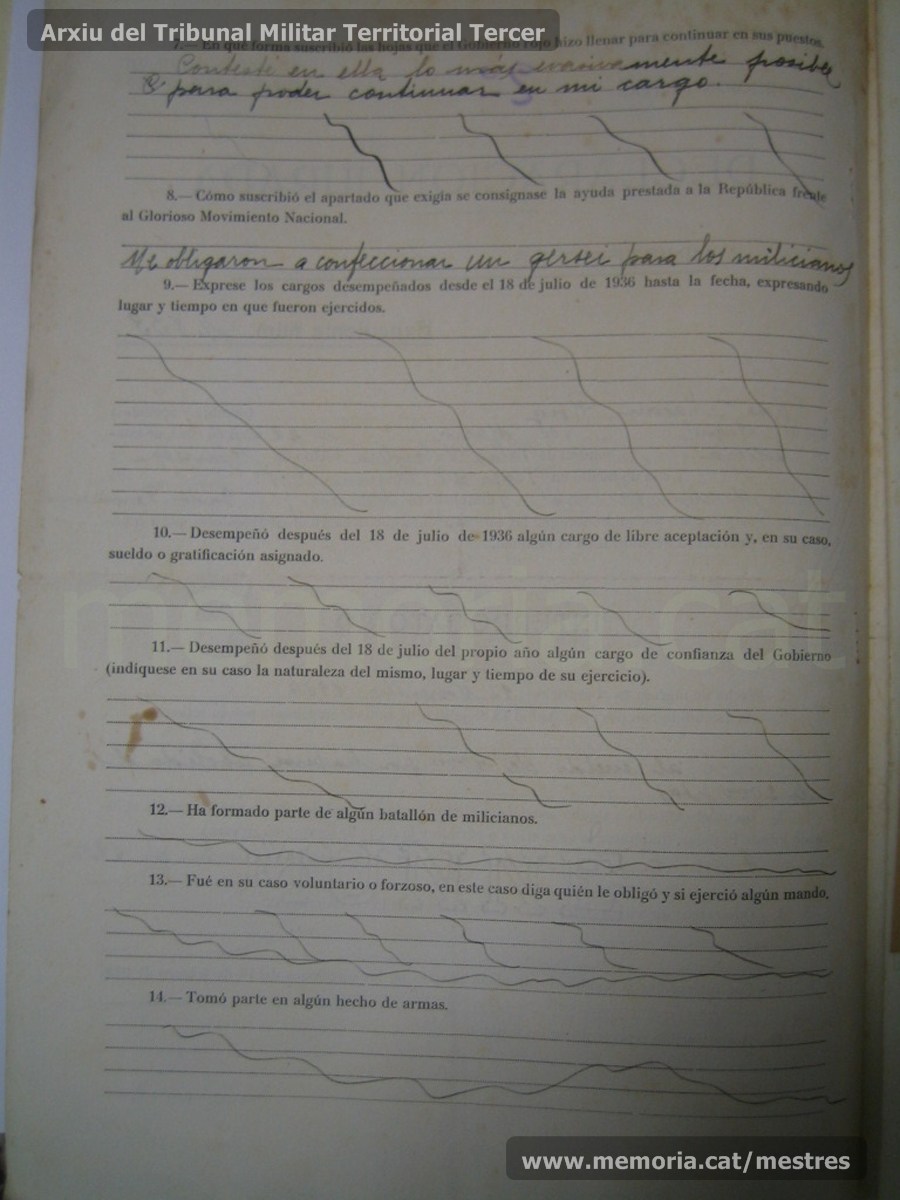 Arxiu del Tribunal Militar Territorial Tercer
7.— En qué forma suscribió las hojas que el Gobierno rojo hizo llenar para continuar en sus puestos.
Contesté en ella lo más evasivamente posible
para poder continuar en mi cargo.
8.— Cómo suscribió el apartado que exigía se consignase la ayuda prestada a la República frente
al Glorioso Movimiento Nacional.
Me obligaron a confeccionar un gersei para los milicianos
9.— Exprese los cargos desempeñados desde el 18 de julio de 1936 hasta la fecha, expresando
lugar y tiempo en que fueron ejercidos.
10.— Desempeñó después del 18 de julio de 1936 algún cargo de libre aceptación y, en su caso,
sueldo o gratificación asignado.
memoria.cat
11.— Desempeñó después del 18 de julio del propio año algún cargo de confianza del Gobierno
(indíquese en su caso la naturaleza del mismo, lugar y tiempo de su ejercicio).
12.— Ha formado parte de algún batallón de milicianos.
13.— Fué en su caso voluntario o forzoso, en este caso diga quién le obligó y si ejerció algún mando.
14.— Tomó parte en algún hecho de armas.
www.memoria.cat/mestres